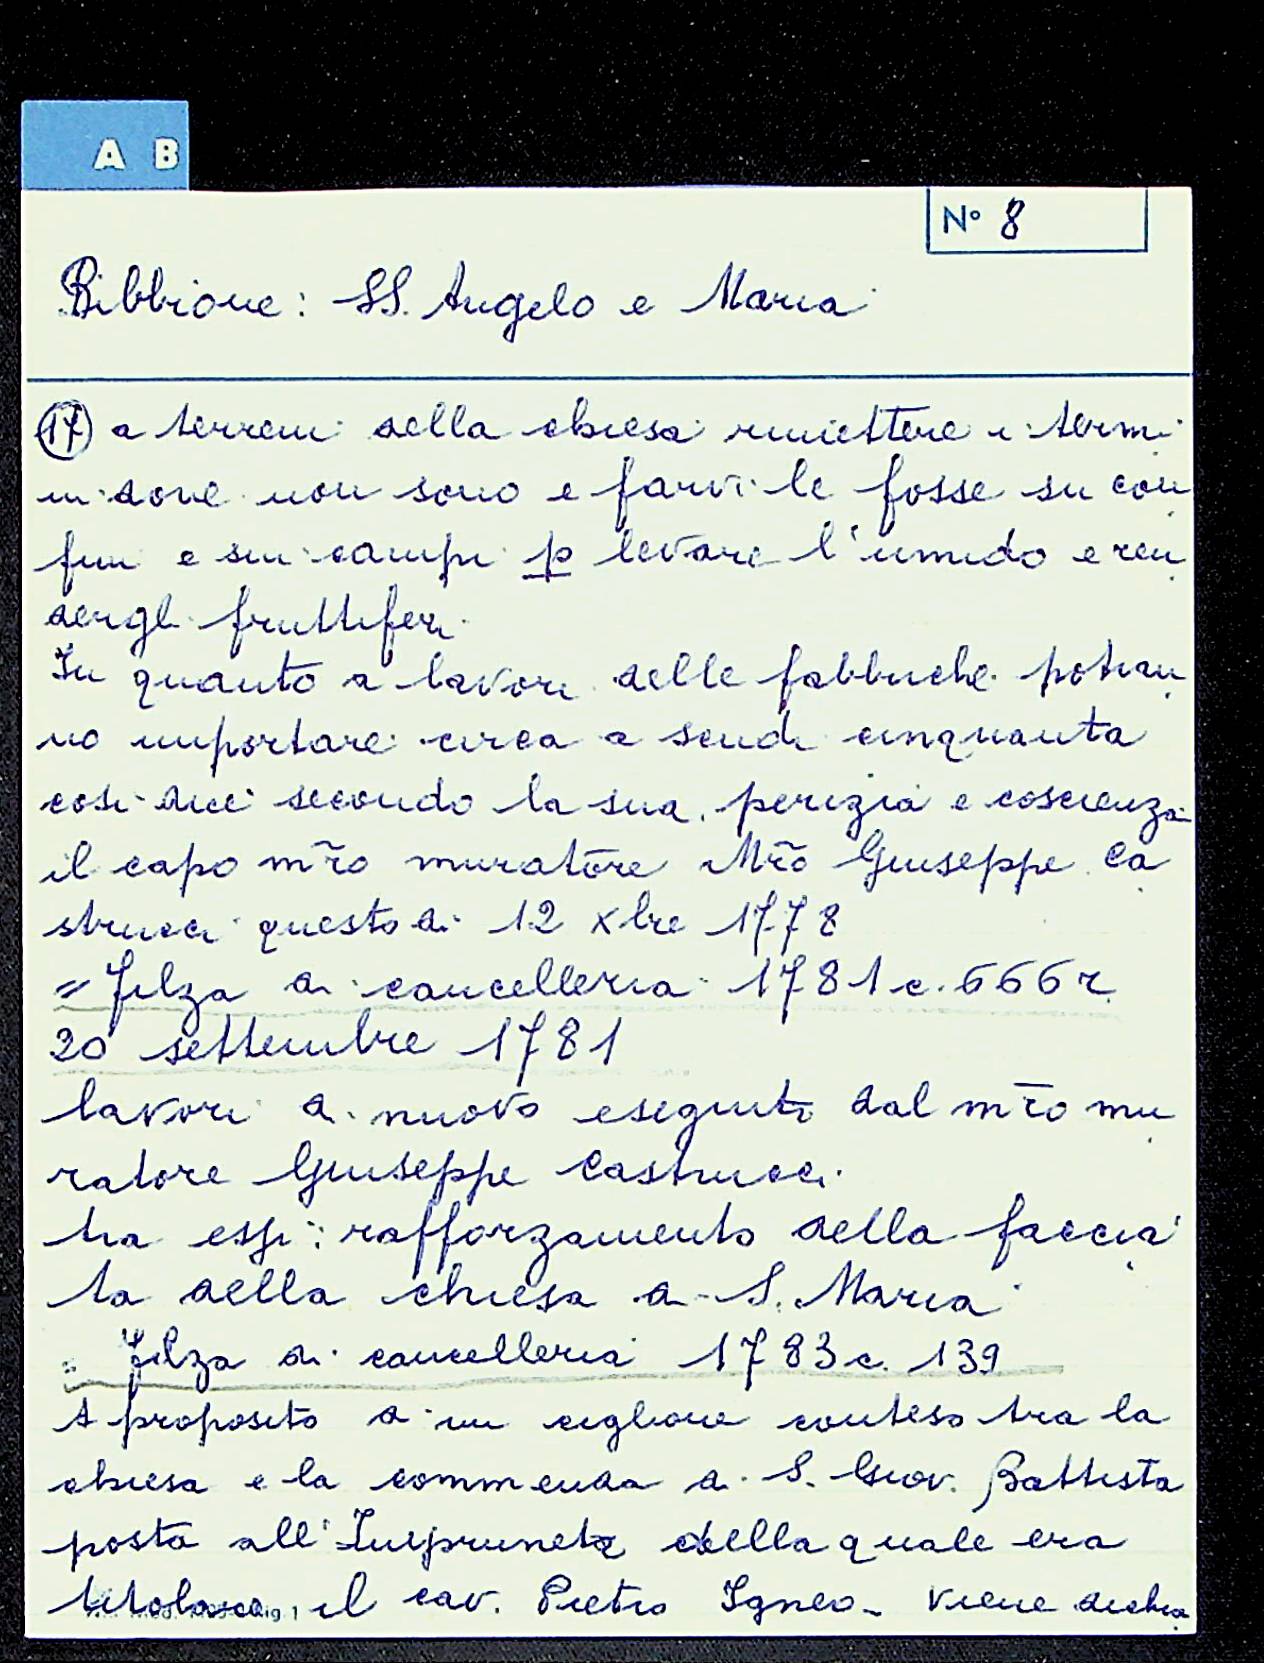 A B
N° 8
Bibbione: SS. Angelo e Maria
(17) a terreni della chiesa rimettere i termi
ni dove non sono e farvi le fosse su con
fini e sui campi p levare l'umido e ren
dergli fruttiferi.
In quanto a lavori delle fabbriche potran
no importare circa a scudi cinquanta
così dice secondo la sua perizia e coscienza
il capo mr̃o muratore Mr̃o Giuseppe Ca
strucci questo di 12 xbre 1778
= Filza di cancelleria 1781 c. 666 r
20 settembre 1781
lavori di nuovo eseguiti dal mr̃o mu
ratore Giuseppe Castrucci.
tra essi: rafforzamento della faccia
ta della chiesa di S. Maria
= Filza di cancelleria 1783 c. 139
A proposito di un ciglione conteso tra la
chiesa e la commenda di S. Giov. Battista
posta all'Impruneta della quale era
titolare il cav. Pietro Igneo. Viene dichia